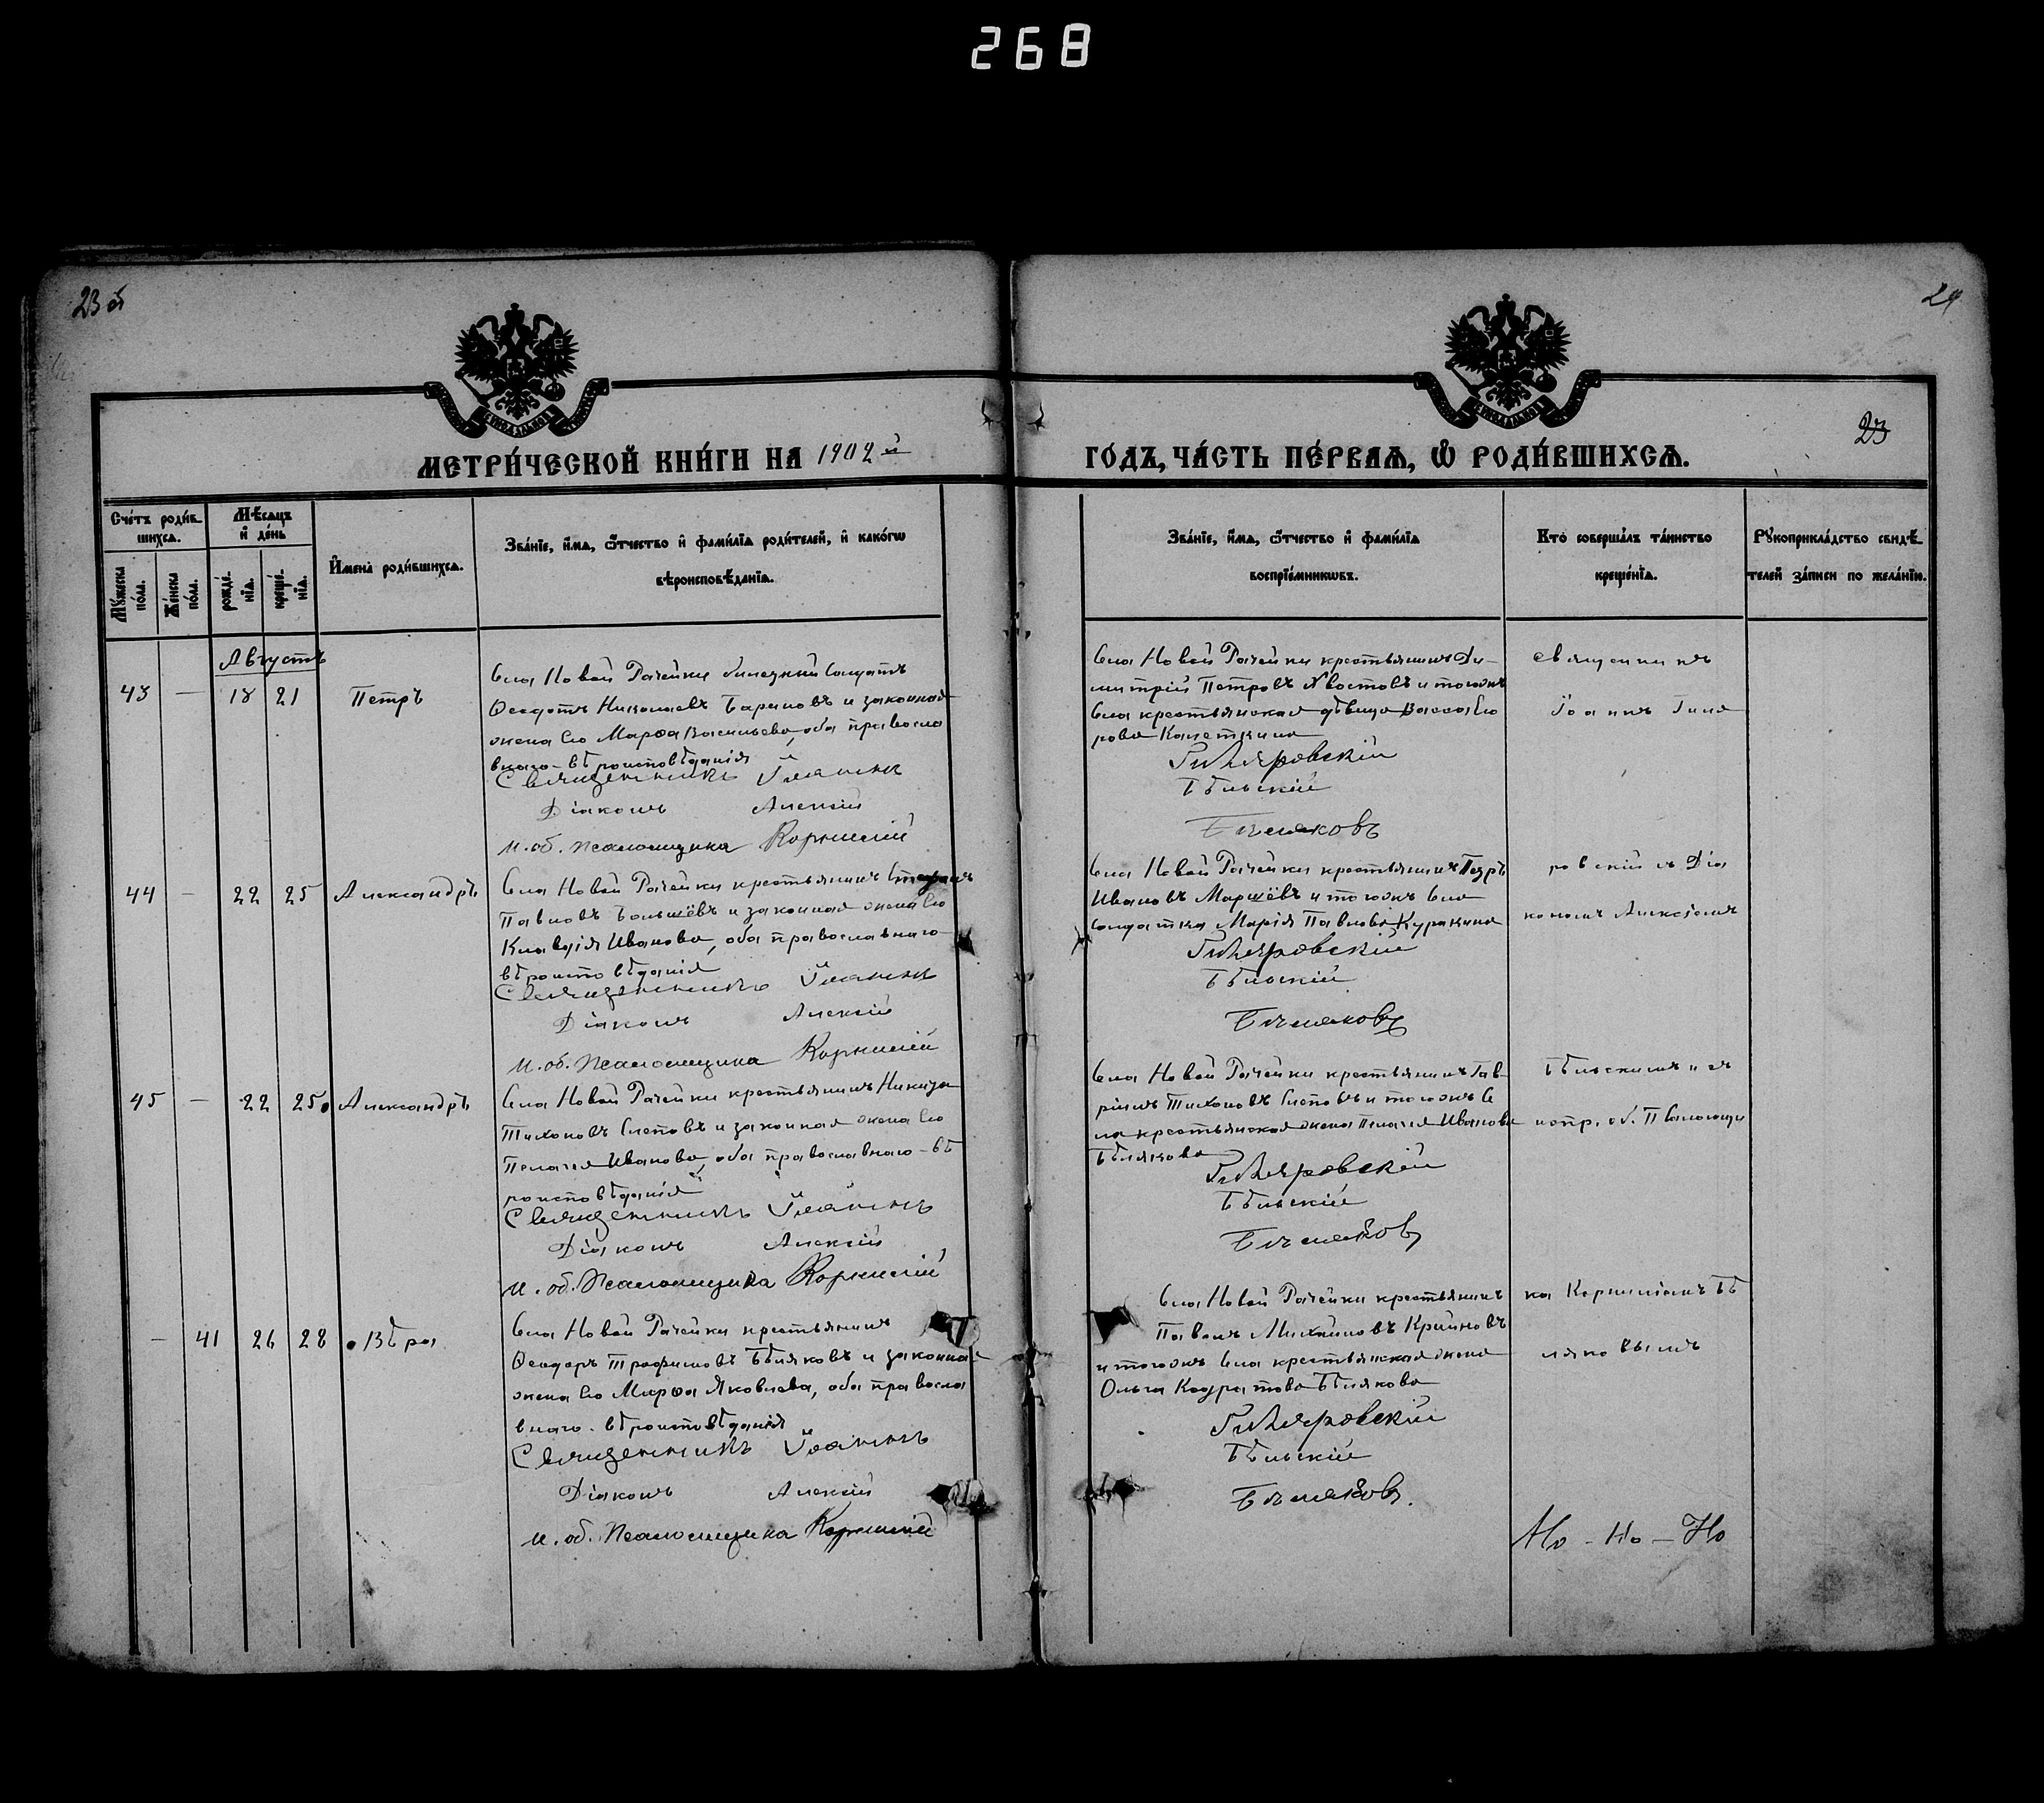 268
23 об
24
23
МЕТРИ́ЧЕСКОЙ КНИ́ГИ НА 1902 й
ГОДЪ, ЧА́СТЬ ПЕ́РВАЯ, Ѡ҆ РОДИ́ВШИХСЯ.
Сче́тъ роди́в-
шихся.
Мѣ́сяцъ
и҆ де́нь
Му́жеска
по́ла.
Же́нска
по́ла.
рожде́-
нїя.
креще́-
нїя.
И҆мена̀ роди́вшихся.
Зва́нїе, и҆́мя, ѻ҆́тчество и҆ фами́лїя роди́телей, и҆ како́гѡ
вѣроисповѣ́данїя.
Зва́нїе, и҆́мя, ѻ҆́тчество и҆ фами́лїя
воспрїе́мникѡвъ.
Кто̀ соверша́лъ та́инство
креще́нїя.
Рꙋкоприкла́дство свидѣ́-
телей за́писи по жела́нїю.
Августъ
43 — 18 21 Петръ
Села Новой Рачейки билетный солдатъ
Феодотъ Николаевъ Бариновъ и законная
жена его Марѳа Васильева, оба правосла
внаго вѣроисповѣданія
Священникъ Іоаннъ
Діаконъ Алексій
И. об. Псаломщика Корнилій
Села Новой Рачейки крестьянинъ Ди-
митрій Петровъ Хвостовъ и тогожъ
Села крестьянская дѣвица Васса Его
рова Канеткина
Гиляровскій
Бѣльскій
Бѣляковъ
Священникъ
Іоаннъ Гиля
44 — 22 25 Александръ
Села Новой Рачейки крестьянинъ Стефанъ
Павловъ Большёвъ и законная жена его
Клавдія Иванова, оба православнаго
вѣроисповѣданія
Священникъ Іоаннъ
Діаконъ Алексій
И. об. Псаломщика Корнилій
Села Новой Рачейки крестьянинъ Петръ
Ивановъ Маршёвъ и тогожъ Села
солдатка Марія Павлова Куракина
Гиляровскій
Бѣльскій
Бѣляковъ
ровскій съ Діа
кономъ Алексіемъ
45 — 22 25 Александръ
Села Новой Рачейки крестьянинъ Никита
Тихоновъ Слеповъ и законная жена его
Пелагея Иванова, оба православнаго вѣ
роисповѣданія
Священникъ Іоаннъ
Діаконъ Алексій
И. об. Псаломщика Корнилій
Села Новой Рачейки крестьянинъ Гав-
ріилъ Тихоновъ Слеповъ и тогожъ Се
ла крестьянская жена Пелагея Иванова
Бѣлякова
Гиляровскій
Бѣльскій
Бѣляковъ
Бѣльскимъ и съ
испр. об. Псаломщи
— 41 26 28 Вѣра
Села Новой Рачейки крестьянинъ
Феодоръ Трофимовъ Бѣляковъ и законная
жена его Марѳа Яковлева, оба правосла
внаго вѣроисповѣданія
Священникъ Іоаннъ
Діаконъ Алексій
И. об. Псаломщика Корнилій
Села Новой Рачейки крестьянинъ
Павелъ Михайловъ Крайновъ
и тогожъ Села крестьянская жена
Ольга Кодратова Бѣлякова
Гиляровскій
Бѣльскій
Бѣляковъ.
ка Корниліемъ Бѣ
ляковымъ